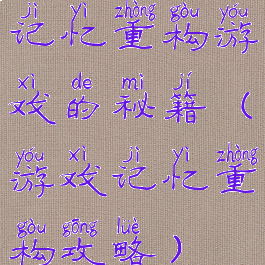 jì yì zhòng gòu yóu
记忆重构游
xì de mì jí
戏的秘籍（
yóu xì jì yì zhòng
游戏记忆重
gòu gōng luè
构攻略）